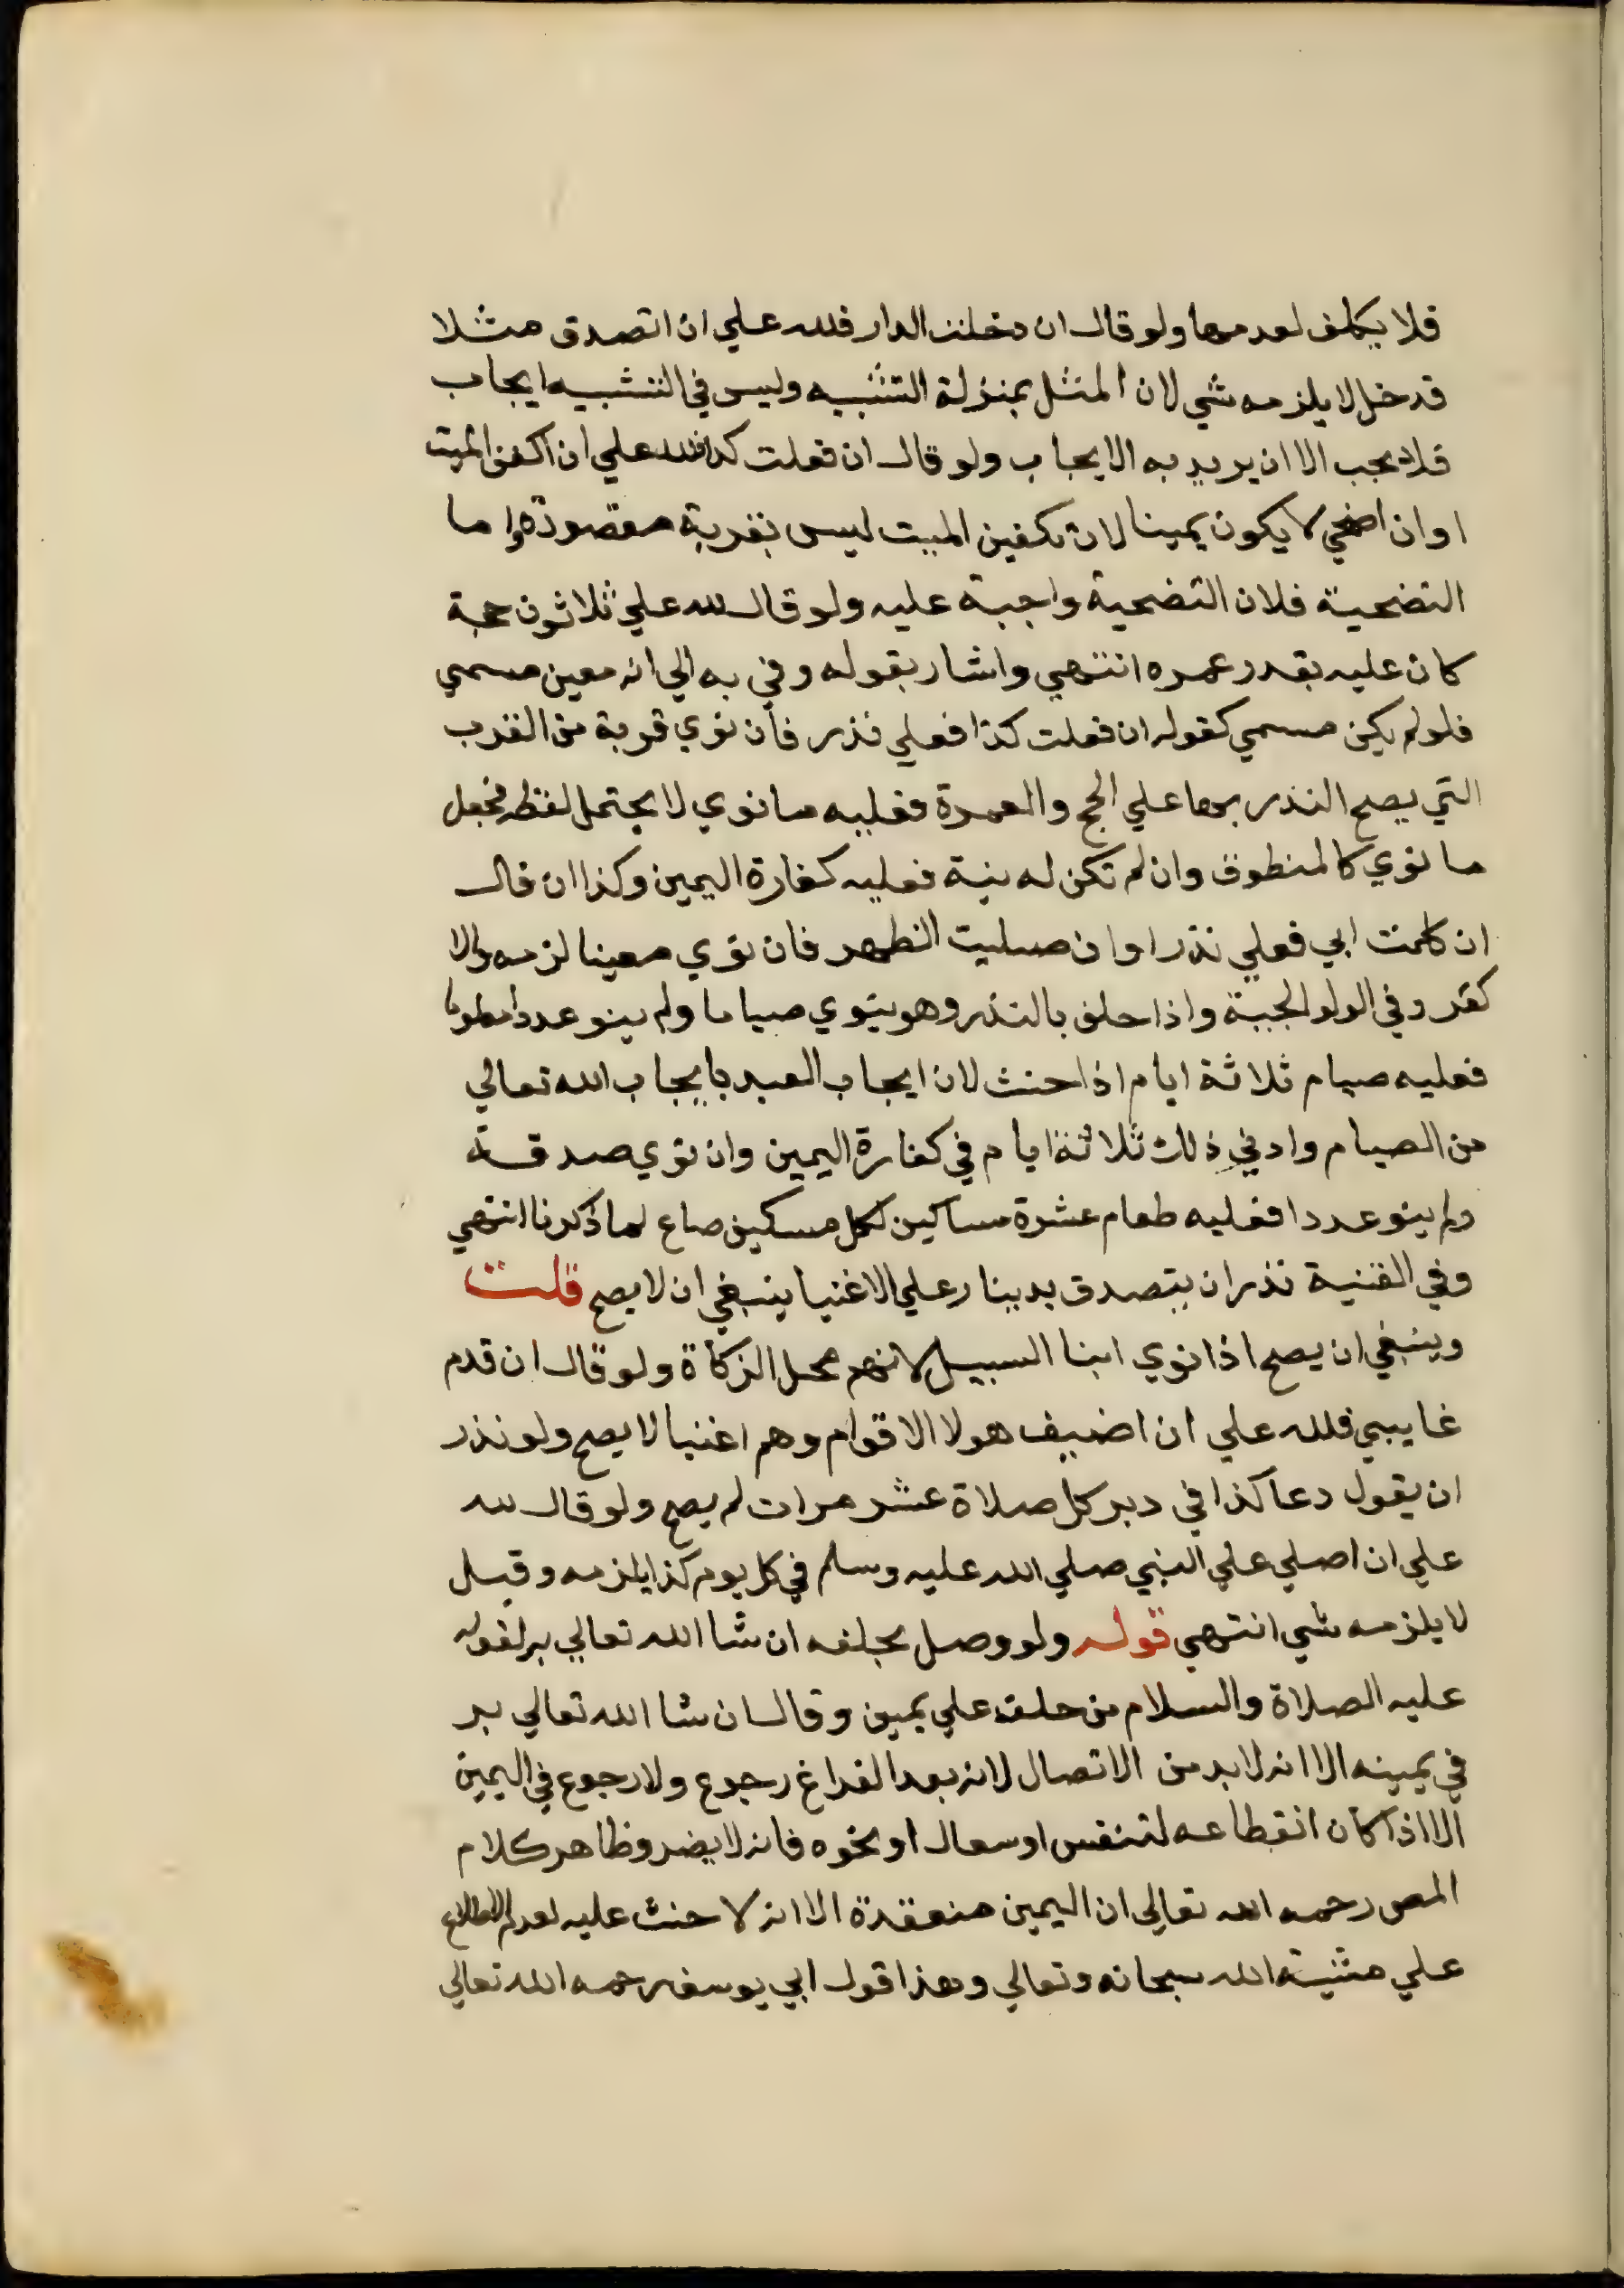 فلا يكلف لعدمها ولو قال ان دخلت الدار فلله علي ان اتصدق مثلا
فدخل لا يلزمه شي لان المثل بمنزلة التشبيه وليس في التشبيه ايجاب
فلا يجب الا ان يريد به الايجاب ولو قال ان فعلت كذا فلله علي ان اكفن الميت
او ان اضحي لا يكون يمينا لان تكفين الميت ليس بقربة مقصودة واما
التضحية فلان التضحية واجبة عليه ولو قال لله علي ثلاثون حجة
كان عليه بقدر عمره انتهي واشار بقوله وفي به الي انه معين مسمي
فلو لم يكن مسمي كقوله ان فعلت كذا فعلي نذر فان نوي قربة من القرب
التي يصح النذر بها علي الحج والعمرة فعليه ما نوي لا يحتمل لفظه فجعل
ما نوي كالمنطوق وان لم تكن له نية فعليه كفارة اليمين وكذا ان قال
ان كلمت ابي فعلي نذر او ان صليت الظهر فان نوي معينا لزمه والا
كفر وفي الولوالجية واذا حلف بالنذر وهو ينوي صياما ولم ينو عددا معلوما
فعليه صيام ثلاثة ايام اذا حنث لان ايجاب العبد بايجاب الله تعالي
من الصيام وادني ذلك ثلاثة ايام في كفارة اليمين وان نوي صدقة
ولم ينو عددا فعليه طعام عشرة مساكين لكل مسكين صاع لما ذكرنا انتهي
وفي القنية نذر ان يتصدق بدينار علي الاغنيا ينبغي ان لا يصح قلت
وينبغي ان يصح اذا نوي ابنا السبيل لانهم محل الزكاة ولو قال ان قدم
غايبي فلله علي ان اضيف هولا الاقوام وهم اغنيا لا يصح ولو نذر
ان يقول دعا كذا في دبر كل صلاة عشر مرات لم يصح ولو قال لله
علي ان اصلي علي النبي صلي الله عليه وسلم في كل يوم كذا يلزمه وقيل
لا يلزمه شي انتهي قوله ولو وصل بحلفه ان شا الله تعالي بر لقوله
عليه الصلاة والسلام من حلف علي يمين وقال ان شا الله تعالي بر
في يمينه الا انه لابد من الاتصال لانه بعد الفراغ رجوع ولا رجوع في اليمين
الا اذا كان انقطاعه لتنفس او سعال او نحوه فانه لا يضر وظاهر كلام
المص رحمه الله تعالي ان اليمين منعقدة الا انه لا حنث عليه لعدم الاطلاع
علي مشية الله سبحانه وتعالي وهذا قول ابي يوسف رحمه الله تعالي